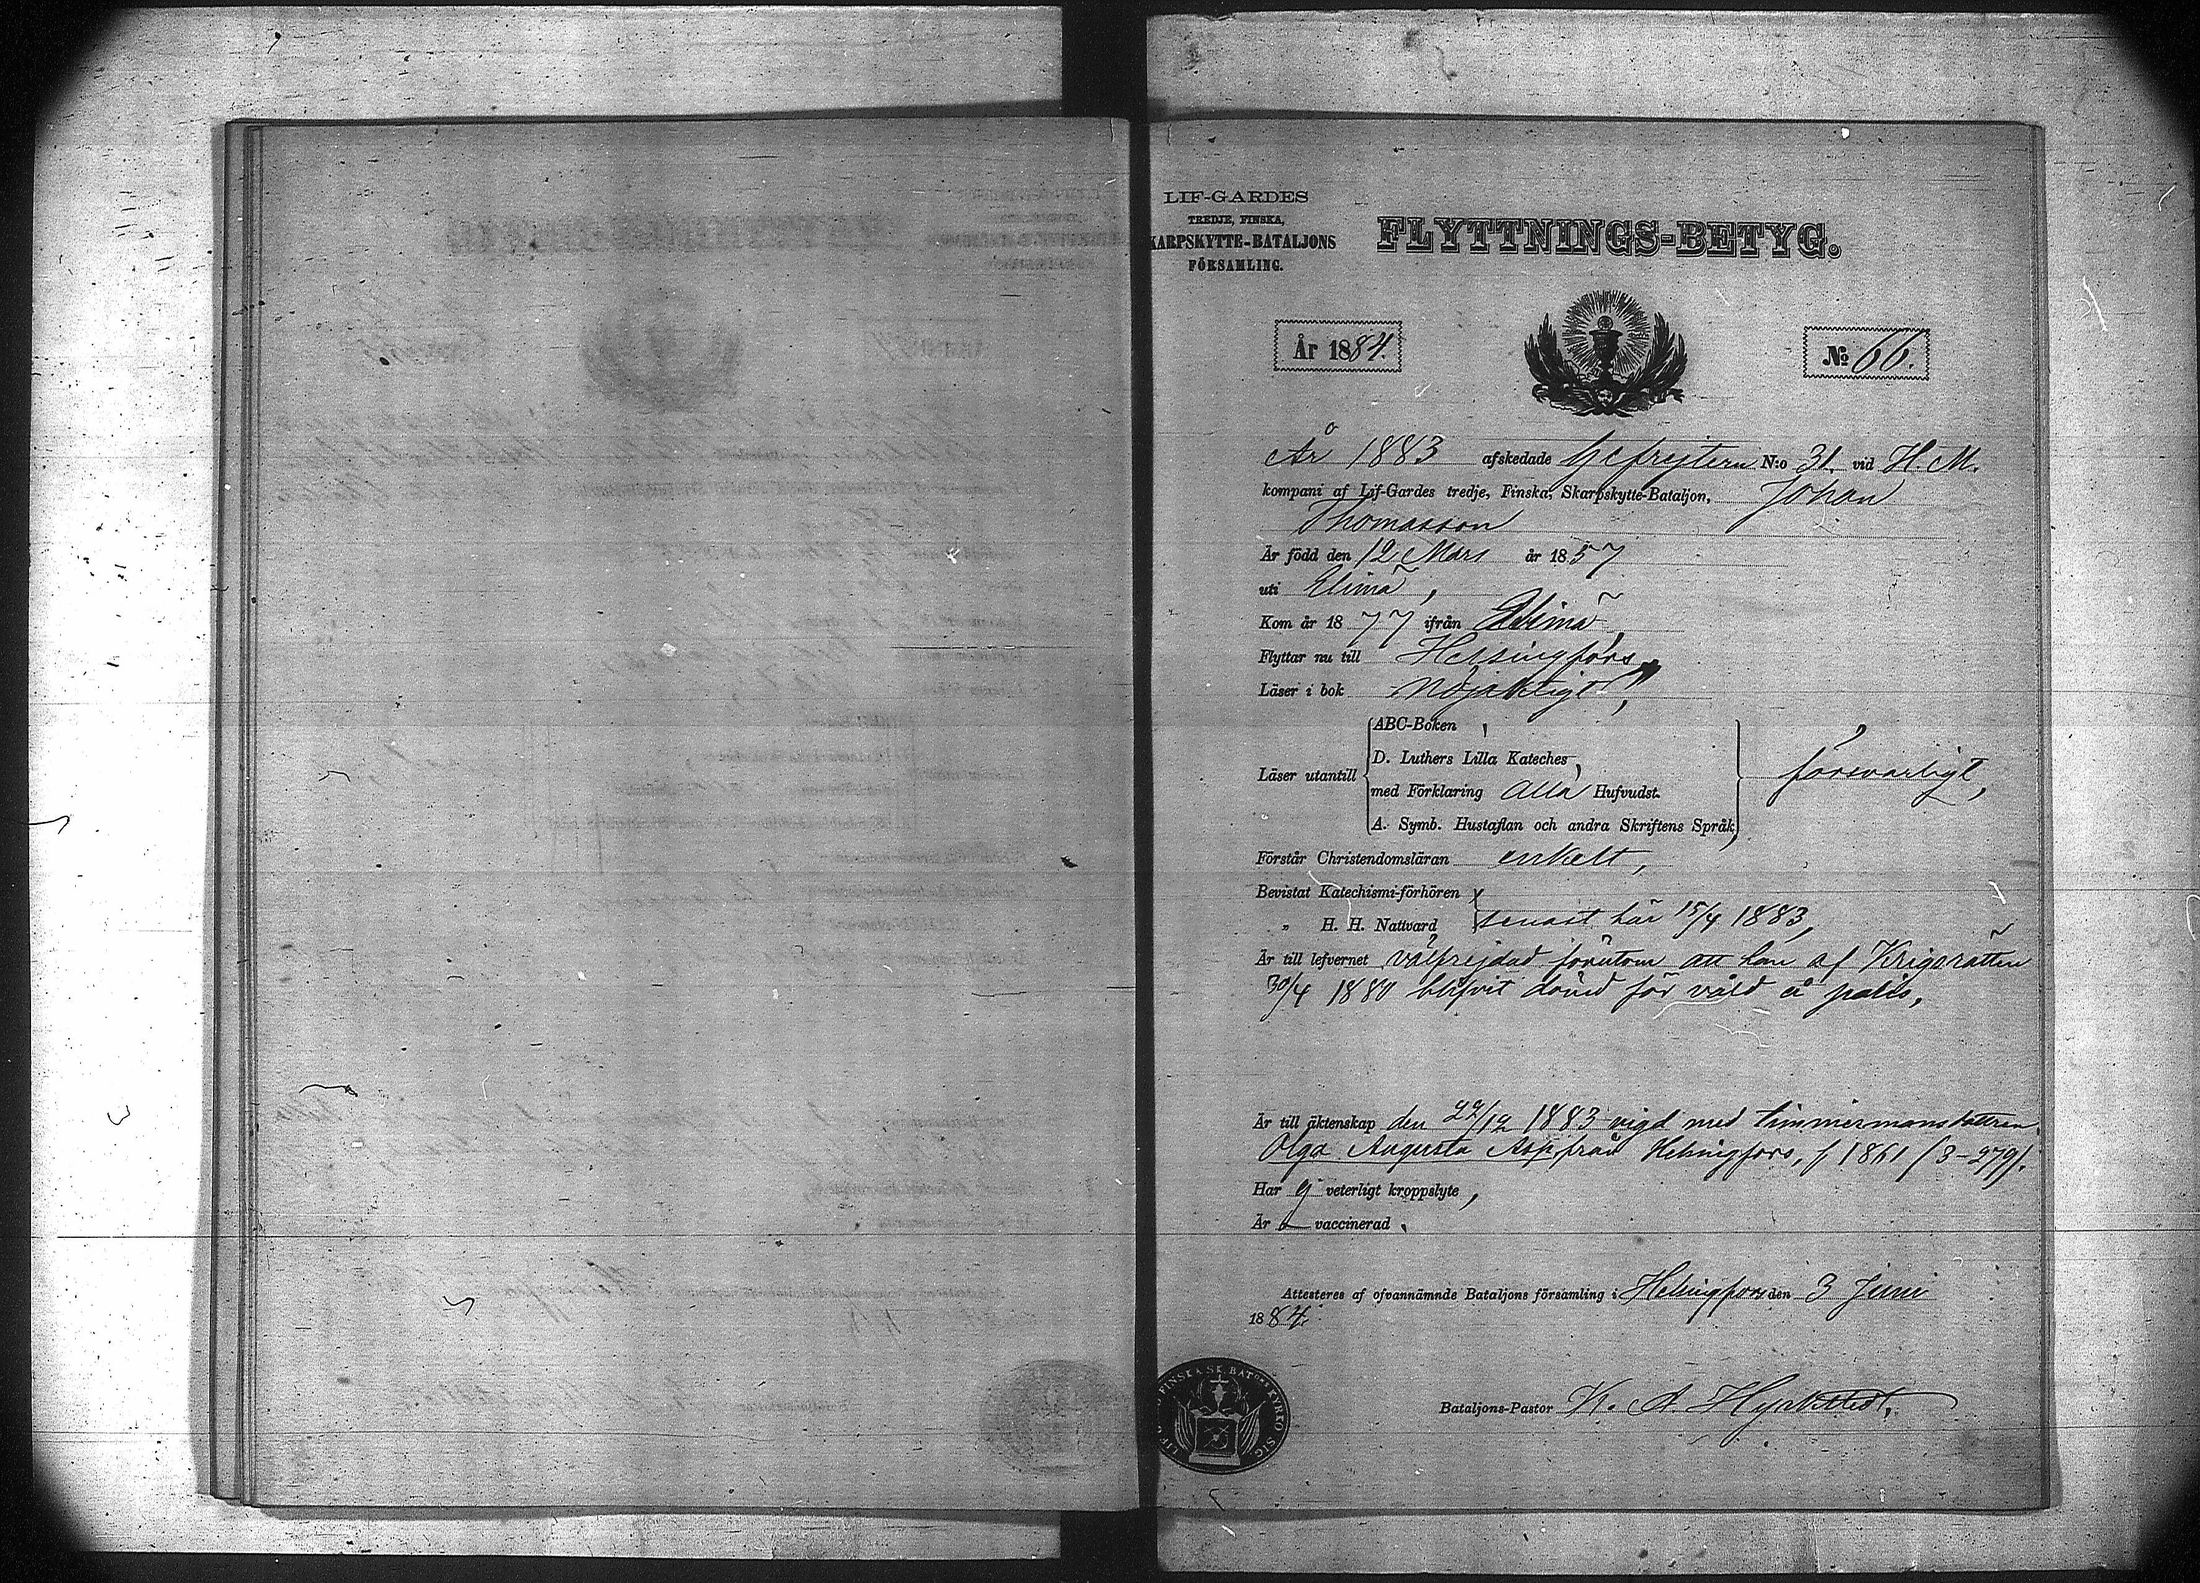 LIF-GARDES
TREDJE, FINSKA,
KARPSKYTTE-BATALJONS
FÖRSAMLING.
FLYTTNINGS-BETYG.
År 1884.
No 66.
År 1883 afskedade Gefrejtern N:o 31. vid H. M.
kompani af Lif-Gardes tredje, Finska, Skarpskytte-Bataljon, Johan
Thomasson
Är född den 12 Mars år 1857
uti Elimä,
Kom år 1877 ifrån Elimä,
Flyttar nu till Helsingfors,
Läser i bok Nöjaktigt,
Läser utantill
ABC-Boken,
D. Luthers Lilla Kateches,
med Förklaring Alla Hufvudst.
A. Symb. Hustaflan och andra Skriftens Språk,
försvarligt,
Förstår Christendomsläran enkelt,
Bevistat Katechismi-förhören
„ H. H. Nattvard senast här 15/4 1883,
Är till lefvernet välfrejdad förutom att han af Krigsrätten
30/4 1880 blifvit dömd för våld å polis,
Är till äktenskap den 29/12 1883 vigd med timmermansdottren
Olga Augusta Asp från Helsingfors, f 1861 (3-279).
Har ej veterligt kroppslyte,
Är vaccinerad.
Attesteres af ofvannämnde Bataljons församling i Helsingfors den 3 Juni
1884.
FINSKA SK. BAT:s KYRKO SIG.
Bataljons-Pastor K. A. Hyrkstedt,